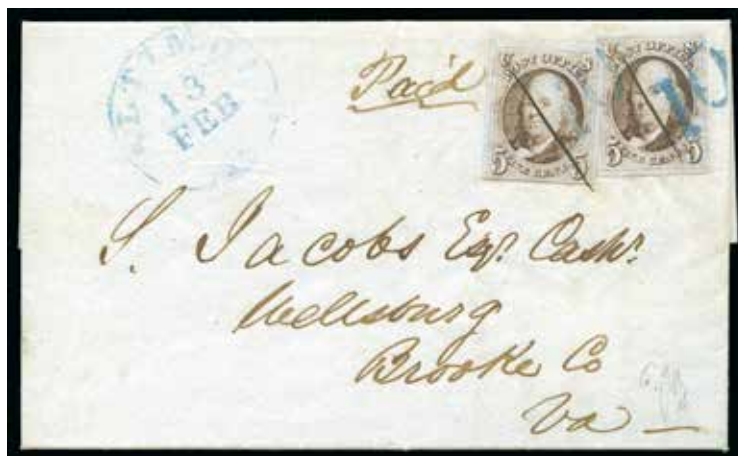 LTIMO
13
FEB
Paid
POST OFFICE
5 FIVE CENTS 5
POST OFFICE
5 FIVE CENTS 5
10
S. Jacobs Esqr. Cashr.
Wellsburg
Brooke Co
Va